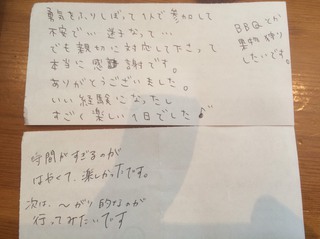 勇気をふりしぼって1人で参加して
不安でい 迷子なって…
でも親切に対応して下さって
本当に感謝です。
ありがとうございました。
いい経験になったし
すごく楽しい1日でした♪
BBQとか
果物狩り
したいです。
時間がすぎるのが
はやくて、楽しかったです。
次は、〜がり的なのが
行ってみたいです